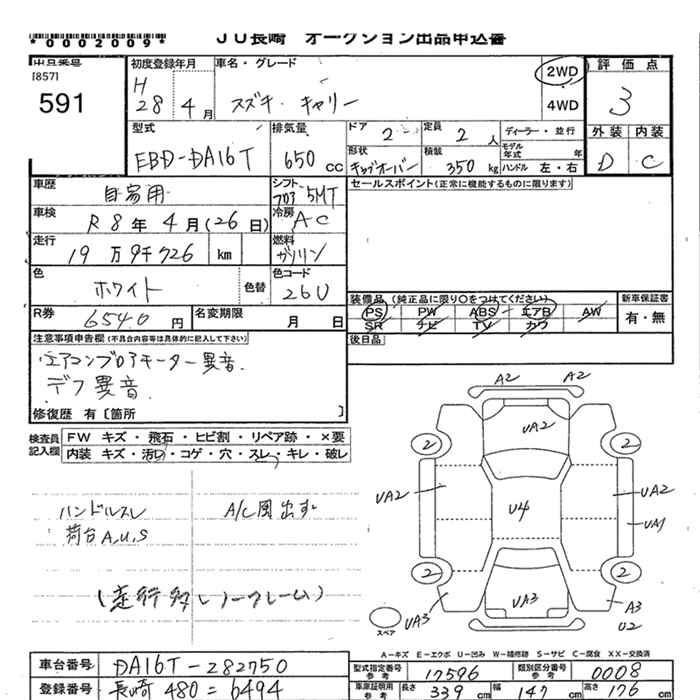 *0002009*
JU長崎 オークション出品申込書
出品番号
[857]
591
初度登録年月
H
28 4 月
車名・グレード
スズキ キャリー
2WD
4WD
評価点
3
外装 内装
D C
型式
EBD-DA16T
排気量
650 cc
ドア 2
形状
キャブオーバー
定員 2 人
積装 350 kg
ディーラー・並行
モデル年式 年
ハンドル 左・右
車歴 自家用
シフト フロア 5MT
セールスポイント(正常に機能するものに限ります)
車検 R 8 年 4 月 (26 日)
冷房 AC
走行 19 万 9千 726 km
燃料 ガソリン
色 ホワイト 色替
色コード 26U
装備品 (純正品に限り○をつけてください)
PS PW ABS エアB AW
SR ナビ TV カワ
新車保証書
有・無
R券 6540 円
名変期限 月 日
後日品
注意事項申告欄 (不具合内容等は具体的に記入して下さい)
エアコンブロアモーター異音.
デフ異音.
修復歴 有〔箇所 〕
検査員記入欄
FW キズ・飛石・ヒビ割・リペア跡・×要
内装 キズ・汚レ・コゲ・穴・スレ・キレ・破レ
ハンドルスレ
荷台A,U,S
A/C風出ず
(走行多しノークレーム)
A2 A2
UA2
2 2
UA2 UA2
U4 UA1
2 2
UA3 UA3 A3
U2
スペア
A-キズ E-エクボ U-凹み W-補修跡 S-サビ C-腐食 XX-交換済
車台番号 DA16T-282750
登録番号 長崎 480 = 6494
型式指定番号 参考 17596
類別区分番号 参考 0008
車庫証明用 参考 長さ 339 cm 幅 147 cm 高さ 176 cm